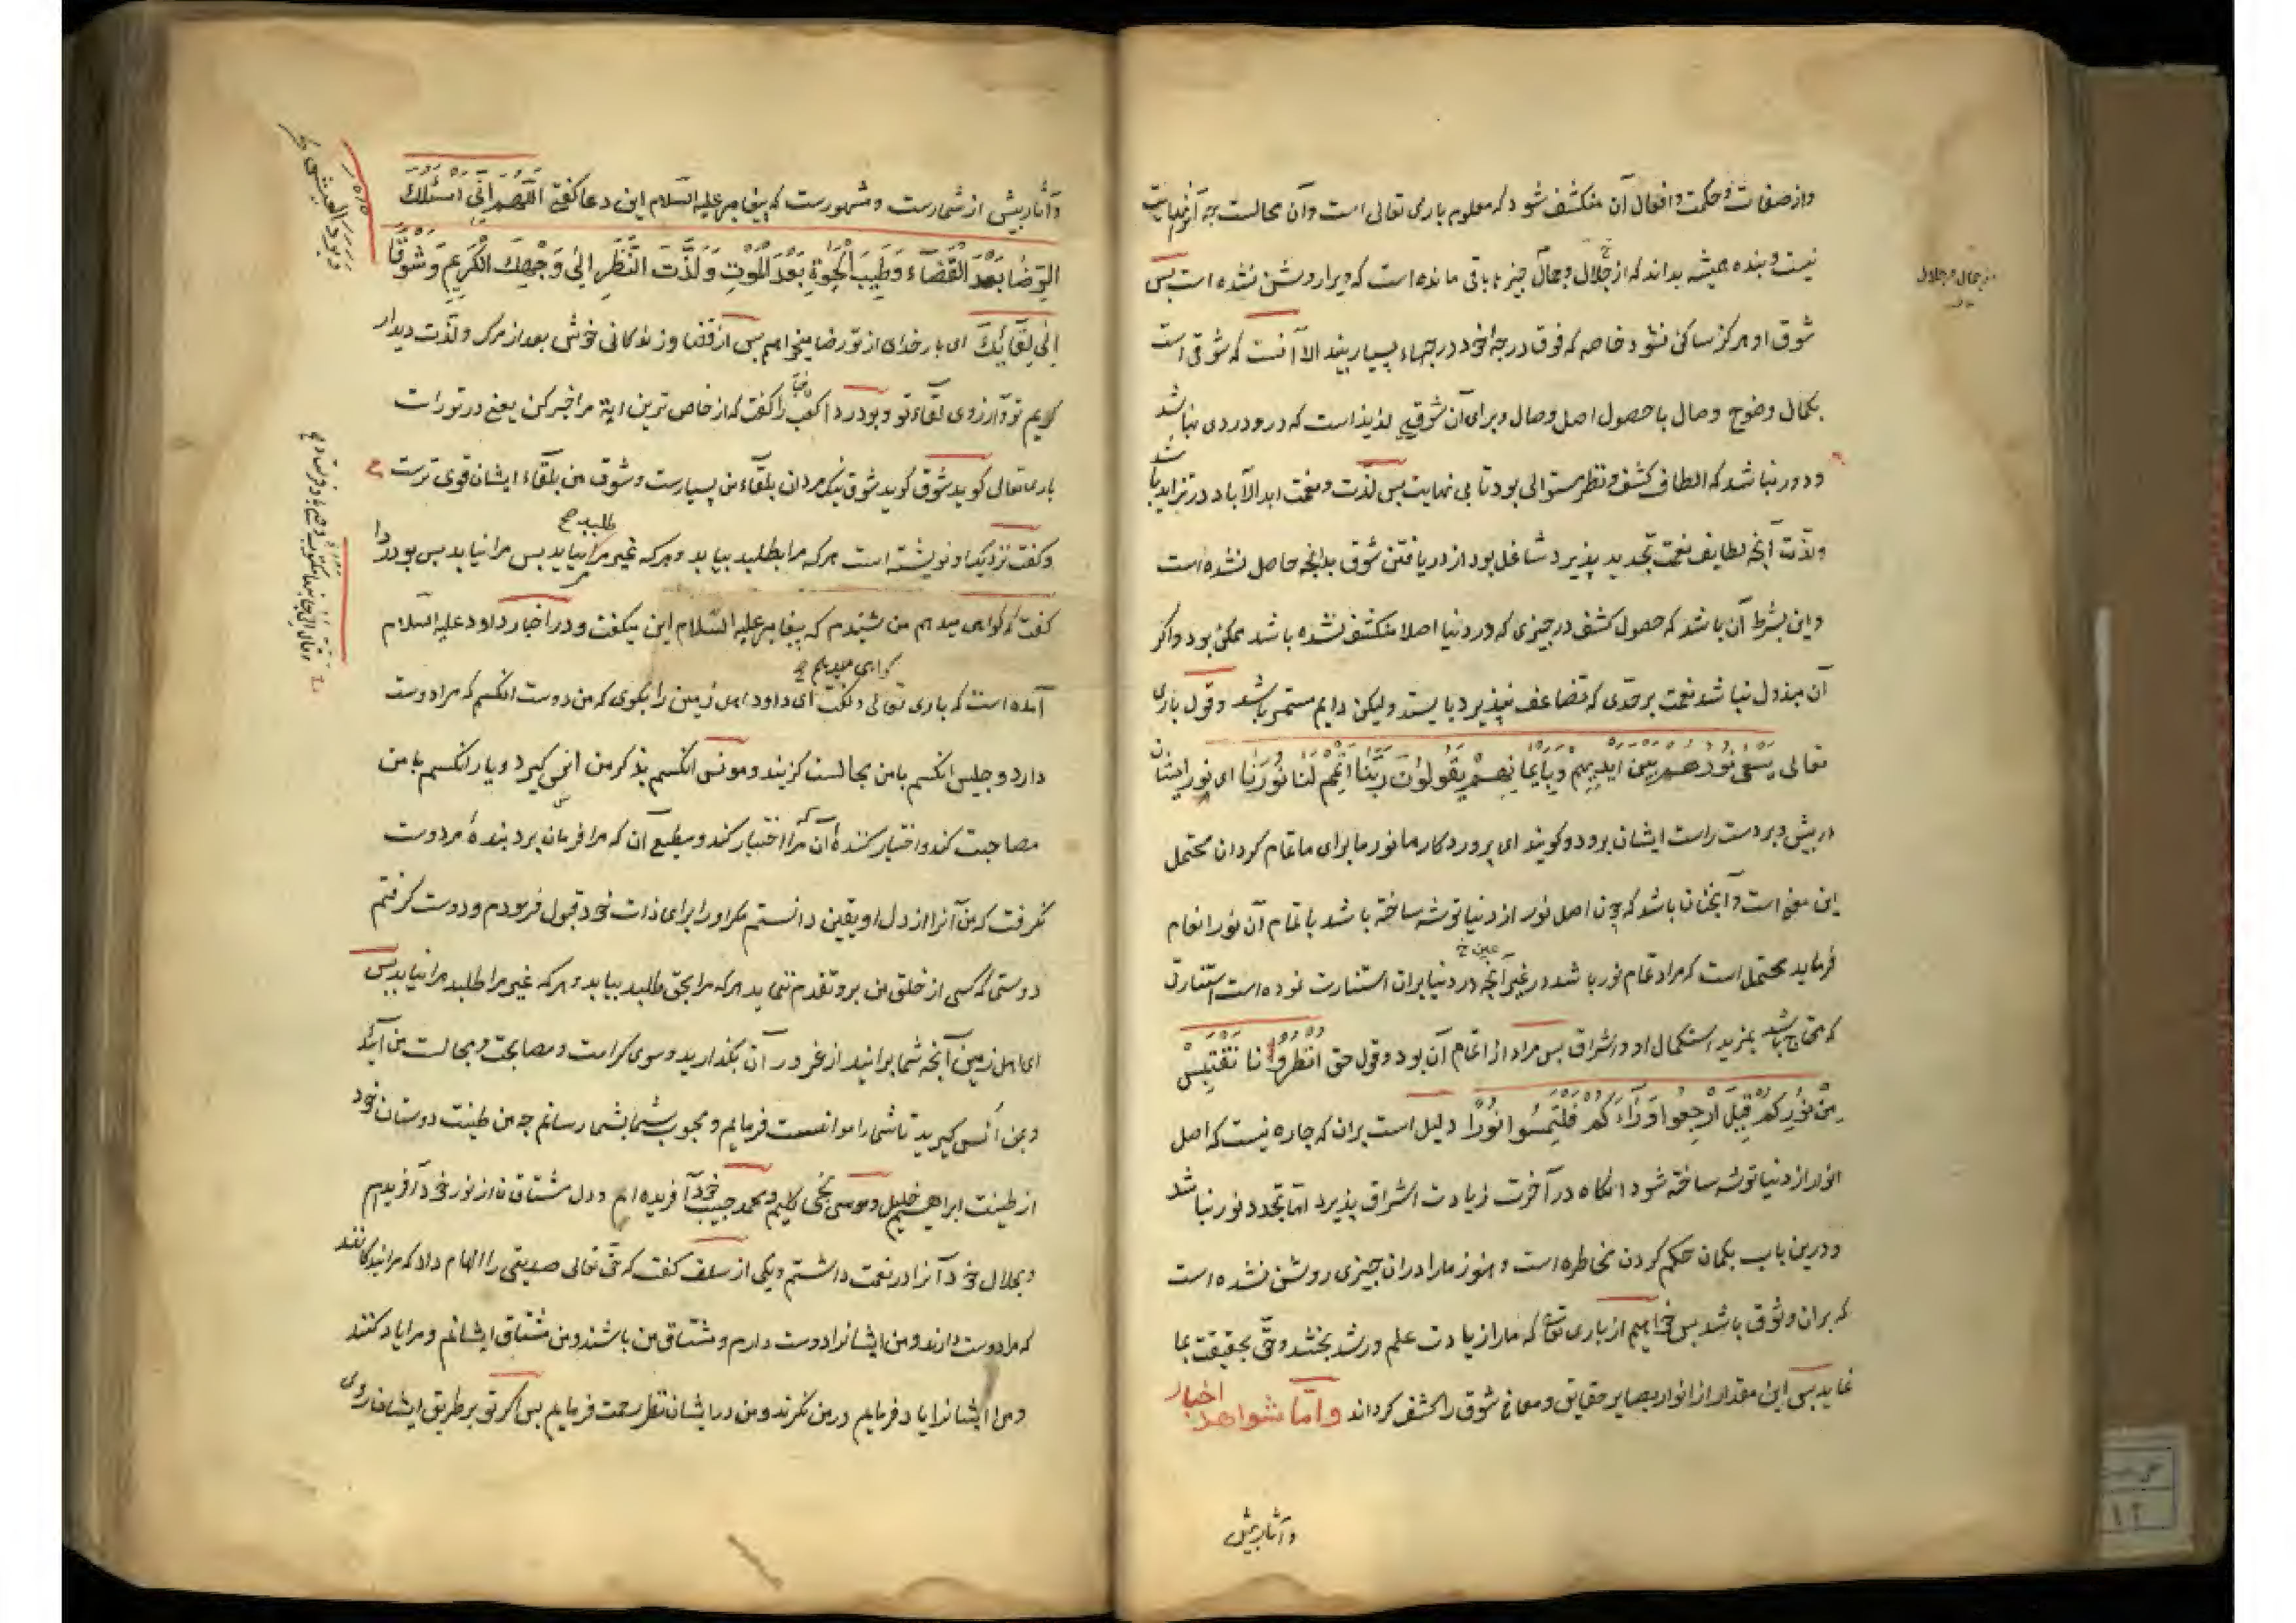 واز صفات و حکمت و افعال آن منکشف شود که معلوم باری تعالی است وآن محالست چه آنرا نهایت
نیست و بنده همیشه بداند که از جلال و جمال چیزها باقی مانده است که ویرا روشن نشده است پس
شوق او هرکز ساکن نشود خاصه که فوق درجهٔ خود درجهاء بسیار بیند الا آنست که شوقی است
بکمال وضوح وصال با حصول اصل وصال وبرای آن شوقی لذیذ است که درو دردی نباشد
ودور نباشد که الطاف کشف ونظر متوالی بود تا بی نهایت پس لذت ونعمت ابد الآباد در تزاید باشد
ولذت آنچه لطایف نعمت تجدید پذیرد شاغل بود از دریافتن شوق بدانچه حاصل نشده است
واین بشرط آن باشد که حصول کشف در چیزی که در دنیا اصلا منکشف نشده باشد ممکن بود واکر
آن مبذول نباشد نعمت بر حدی که تضاعف نپذیرد بایستد ولیکن دایم مستمر باشد وقول باری
تعالی یَسْعٰی نُورُهُمْ بَیْنَ اَیْدِیهِمْ وَبِاَیْمَانِهِمْ یَقُولُونَ رَبَّنَا اَتْمِمْ لَنَا نُورَنَا ای نور ایشان
در پیش وبر دست راست ایشان برود وکویند ای پروردکار ما نور ما برای ما تمام کردان محتمل
این معنی است وآنچنان باشد که چون اصل نور از دنیا توشه ساخته باشد باتمام آن نور انعام
فرماید محتمل است که مراد تمام نور باشد در غیر آنچه در دنیا بران استنارت نوده است استنارتی
عین خ
که محتاج باشد بمزید استکمال او واشراق پس مراد از اتمام آن بود وقول حق اُنْظُرُونَا نَقْتَبِسْ
مِنْ نُورِکُمْ قِیلَ ارْجِعُوا وَرَاءَکُمْ فَلْتَمِسُوا نُورًا دلیل است بران که چاره نیست که اصل
انوار از دنیا توشه ساخته شود انکاه در آخرت زیادت اشراق پذیرد اما تجدد نور نباشد
ودرین باب بکمان حکم کردن مخاطره است وهنوز ما را دران چیزی روشن نشده است
که بران وثوق باشد پس خواهیم از باری تعالی که ما را زیادت علم ورشد بخشد وحق بحقیقت بما
نماید پس این مقدار از انوار بصایر حقایق ومعانی شوق را کشف کرداند واما شواهد اخبار
وآثار بیش
از جمال و جلال
وآثار بیش از شمارست ومشهورست که پیغامبر علیه السلام این دعا کفتی اَللّٰهُمَّ اِنِّی اَسْئَلُکَ
الرِّضَا بَعْدَ الْقَضَاءِ وَطِیبَ الْحَیٰوةِ بَعْدَ الْمَوْتِ وَلَذَّتَ النَّظَرِ اِلٰی وَجْهِکَ الْکَرِیمِ وَشَوْقًا
اِلٰی لِقَائِکَ ای بار خدای از تو رضا میخواهم پس از قضا وزندکانی خوش بعد از مرک ولذت دیدار
کریم تو وآرزوی لقاء تو وبودردا کعب را کفت که از خاص ترین ایة مرا خبر کن یعنی در تورات
باری تعالی کوید شوق کوید شوق نیک مردان بلقاء من بسیارست وشوق من بلقاء ایشان قوی ترست
وکفت نزدیک او نوشته است هرکه مرا بطلبد بیابد وهرکه غیر مرا بیابد پس مرا نیابد پس بودردا
طلبد صح
کفت که کواهی میدهم من شنیدم که پیغامبر علیه السلام این میکفت ودر اخبار داود علیه السلام
کواهی میدهم خ
آمده است که باری تعالی وکفت ای داود اهل زمین را بکوی که من دوست آنکسم که مرا دوست
دارد وجلیس آنکسم با من مجالست کزیند ومونس آنکسم بذکر من انس کیرد ویار آنکسم با من
مصاحبت کند واختیار کنندهٔ آن که مرا اختیار کند ومطیع آن که مرا فرمان برد بندهٔ مرا دوست
نکرفت که من آنرا از دل او یقین دانستم مکر او را برای ذات خود قبول فرمودم ودوست کرفتم
دوستی که کسی از خلق من برو تقدم ننماید هرکه مرا بحق طلبد بیابد وهرکه غیر مرا طلبد مرا نیابد پس
ای اهل زمین آنچه شما برانید از غرور آن بکذارید وسوی کرامت ومصاحبت ومجالست من آیید
وبمن انس کیرید تا شما را موانست فرمایم ومحبوب شما بشما رسانم چه من طینت دوستان خود
از طینت ابراهیم خلیل وموسی نجی کلیم ومحمد حبیب خود آفریده ام ودل مشتاقان از نور خود آفریدم
وبجلال خود آنرا در نعمت داشتم ویکی از سلف کفت که حق تعالی صدیقی را الهام داد که مرا بندکانند
که مرا دوست دارند ومن ایشانرا دوست دارم ومشتاق من باشند ومن مشتاق ایشانم ومرا یاد کنند
ومن ایشانرا یاد فرمایم ودر من نکرند ومن در ایشان نظر رحمت فرمایم پس اکر تو بر طریق ایشان روی
وبرد العیش